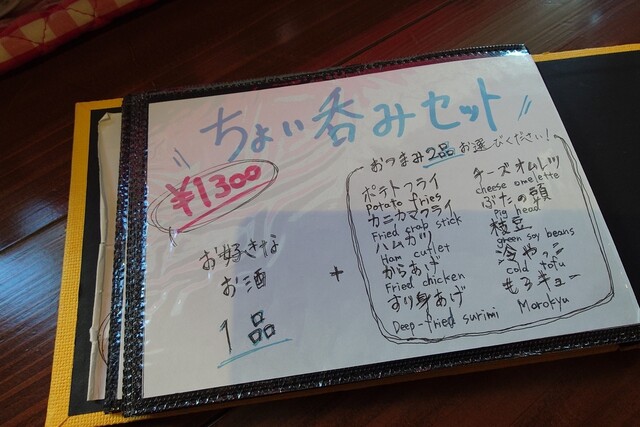 ちょい呑みセット
¥1300
お好きな
お酒
1品
+
おつまみ2品お選びください!
ポテトフライ
Potato fries
カニカマフライ
Fried crab stick
ハムカツ
Ham cutlet
からあげ
Fried chicken
すり身あげ
Deep-fried surimi
チーズオムレツ
cheese omelette
ぶたの頭
pig head
枝豆
green soy beans
冷やっこ
cold tofu
もろキュー
Morokyu